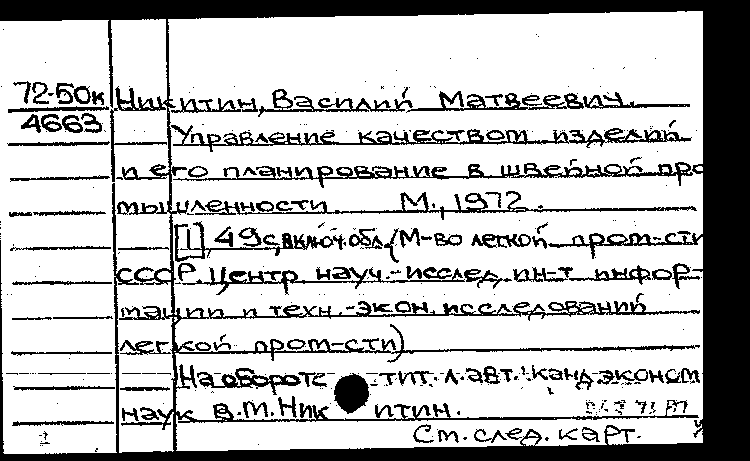 72-50к Никитин, Василий Матвеевич.
4663 Управление качеством изделий
и его планирование в швейной про
мышленности. М., 1972.
[1], 49 с, включ. обл. (М-во легкой пром-сти
СССР. Центр. науч.-исслед. ин-т инфор-
мации и техн.-экон. исследований
легкой пром-сти)
На обороте тит. л. авт.: канд. эконом
наук В.М. Никитин.
См. след. карт.